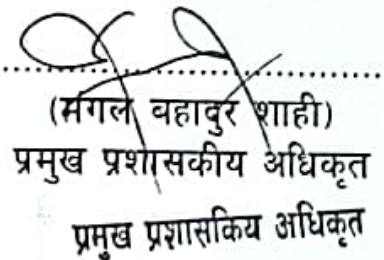 (मंगल बहादुर शाही)
प्रमुख प्रशासकीय अधिकृत
प्रमुख प्रशासकिय अधिकृत